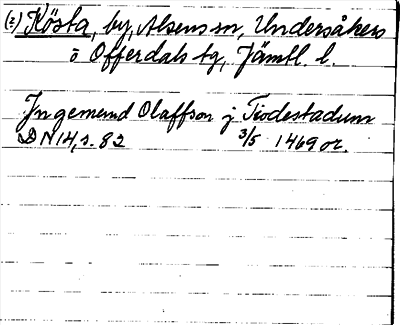 (z) Kösta, by, Alsens sn, Undersåkers
o Offerdals tg, Jämtl. l.
Ingemund Olaffson j Tiodestadum
DN 14, s. 82 3/5 1469 or.